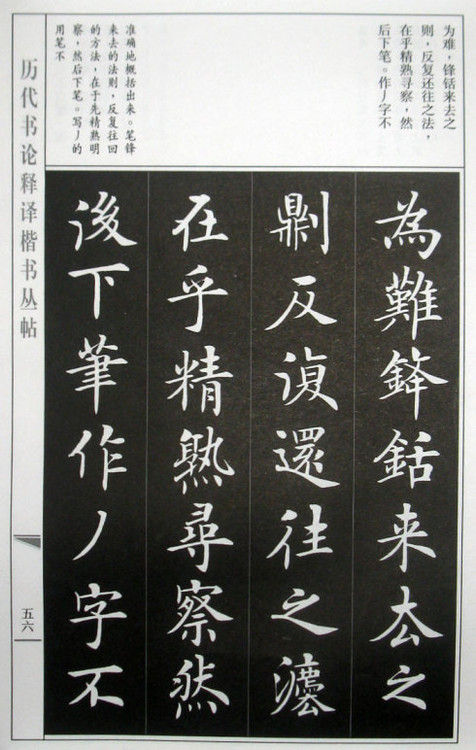 为难，锋铦来去之
则，反复还往之法，
在乎精熟寻察，然
后下笔。作丿字不
准确地概括出来。笔锋
来去的法则，反复往回
的方法，在于先精熟明
察，然后下笔。写丿的
用笔不
為難鋒銛来厺之
則反復還往之灋
在乎精熟尋察然
後下筆作丿字不
历代书论释译楷书丛帖
五六